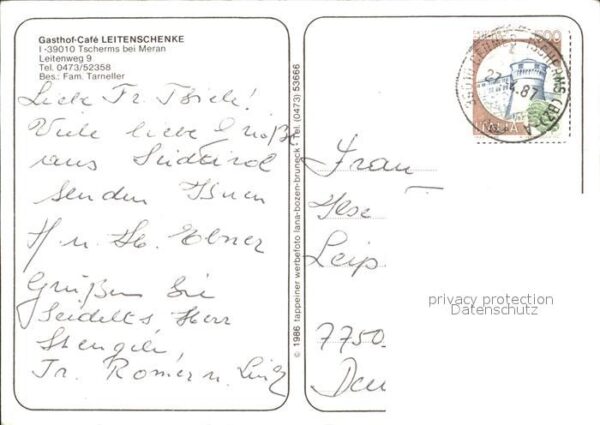 Gasthof-Café LEITENSCHENKE
I-39010 Tscherms bei Meran
Leitenweg 9
Tel. 0473/52358
Bes.: Fam. Tarneller
Liebe Fr.
Viele liebe Grüße
aus Südtirol
senden Ihnen
H u. Ebner
Grüßen Sie
Seidelts Herr
Stengele
Fr. Römer u.
© 1986 tappeiner werbefoto lana-bozen-bruneck - Tel. (0473) 53666
ITALIA
Frau
Ilse
Leip
7750
Deu
privacy protection
Datenschutz